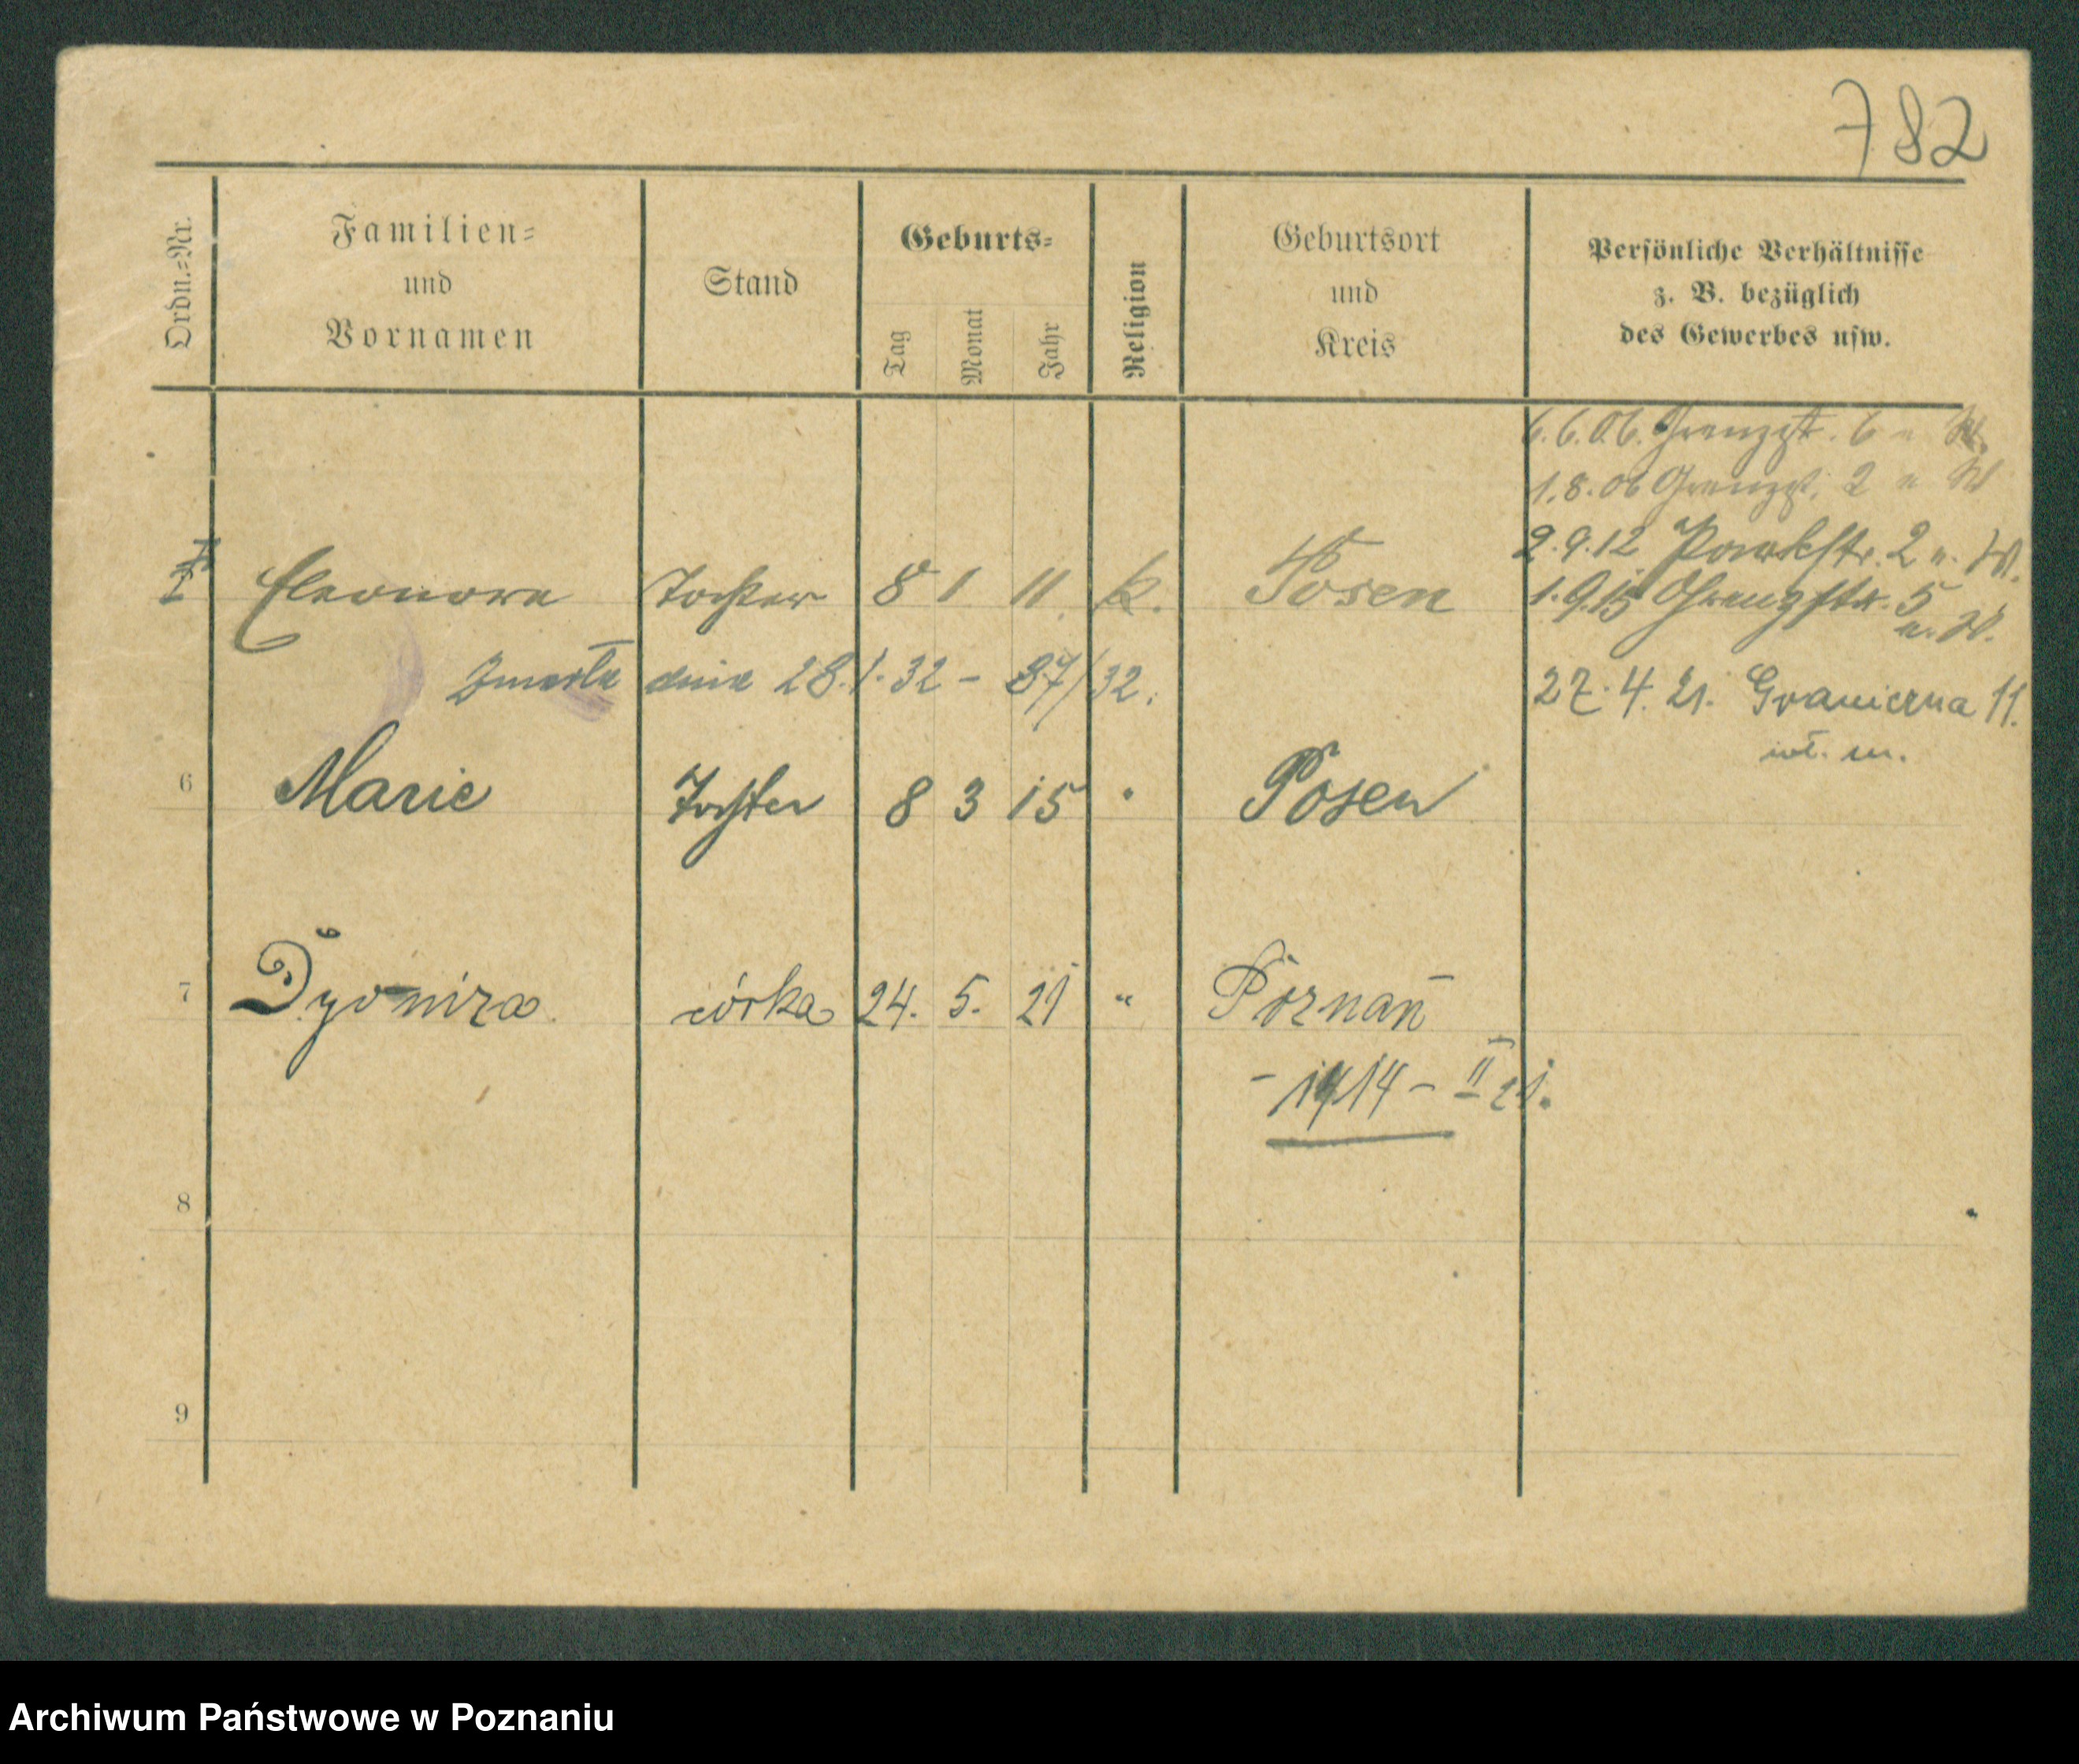 782
Ordn.=Nr.
Familien=
und
Vornamen
Stand
Geburts=
Tag
Monat
Jahr
Religion
Geburtsort
und
Kreis
Persönliche Verhältnisse
z. B. bezüglich
des Gewerbes usw.
6.6.06. Grenzstr. 6 u W.
1.8.06 Grenzstr. 2 u W
2.9.12 Parkstr. 2 u. W.
Eleonore Tochter 8 1 11 k. Posen
1.9.15 Grenzstr. 5
u. W.
Zmarła dnia 28.1.32 - 87/32.
27.4.21. Graniczna 11.
wł. m.
6 Marie Tochter 8 3 15 " Posen
7 Dyoniza córka 24. 5. 21 " Poznań
- 1914 - II 21.
8
9
Archiwum Państwowe w Poznaniu